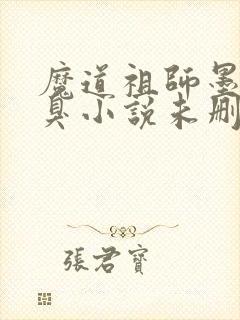 魔道祖師墨
臭小說未刪
張君寶